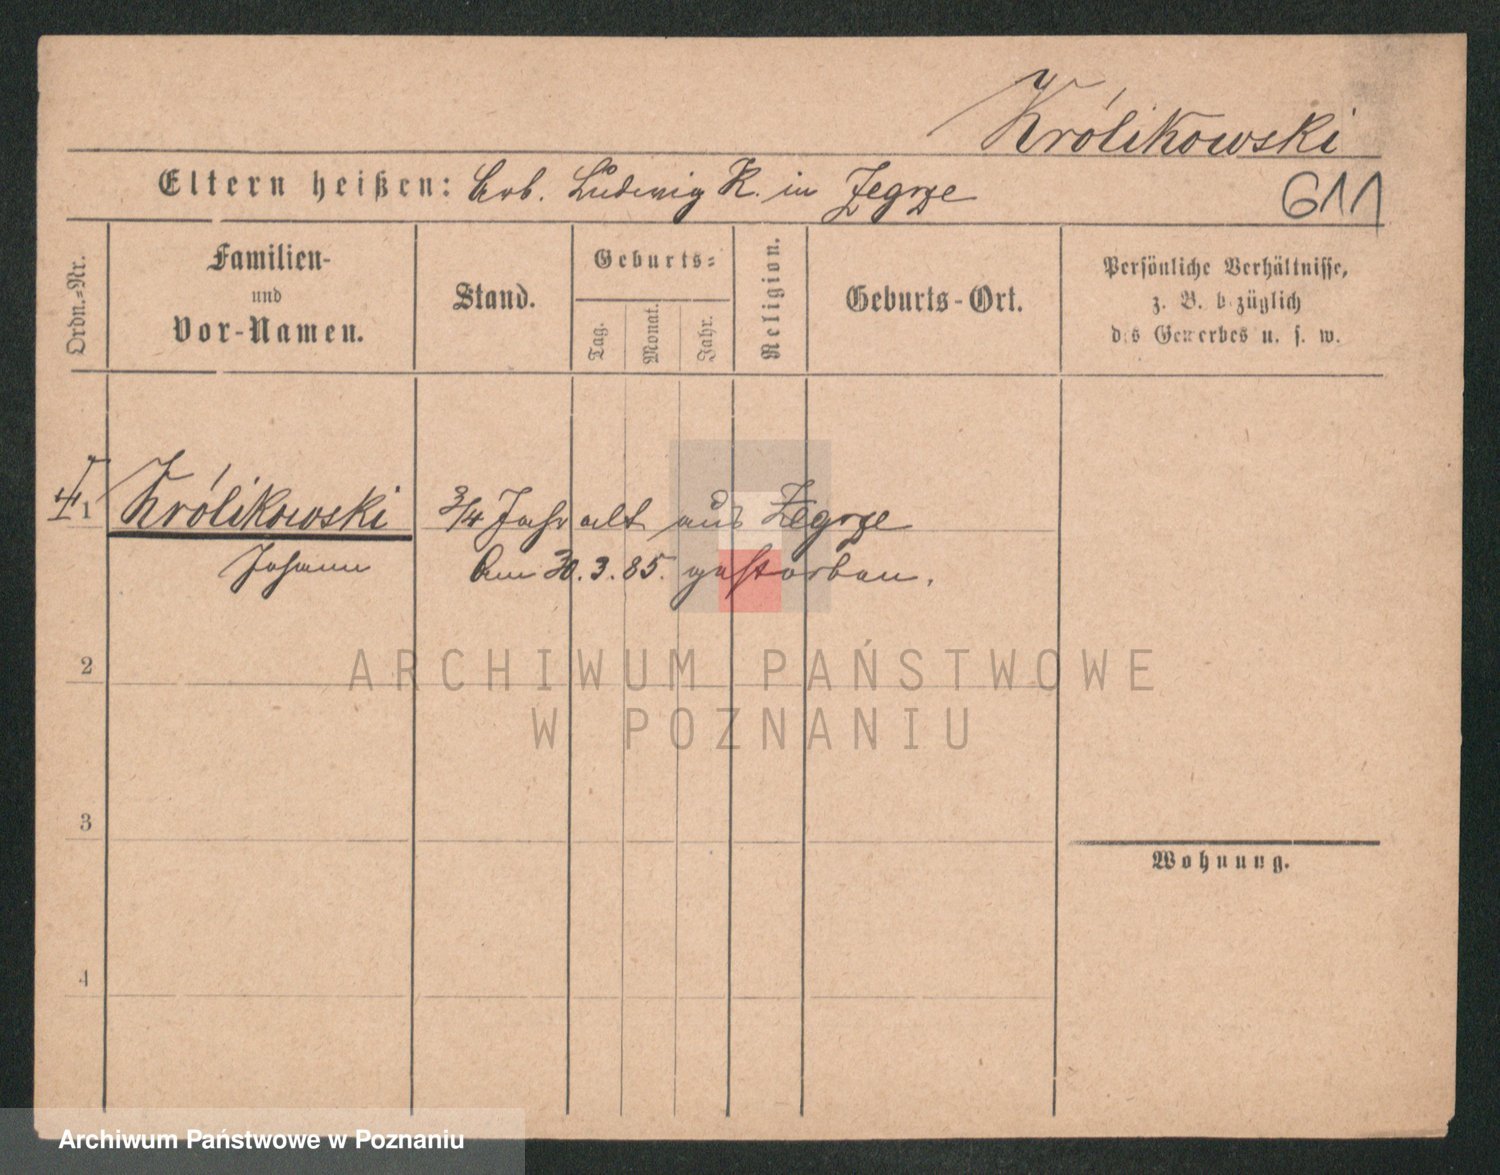 Królikowski
Eltern heißen: Arb. Ludwig K. in Zegrze
611
Ordn.=Nr.
Familien-
und
Vor-Namen.
Stand.
Geburts=
Tag.
Monat.
Jahr.
Religion.
Geburts-Ort.
Persönliche Verhältnisse,
z. B. bezüglich
des Gewerbes u. s. w.
1 Królikowski 3/4 Jahr alt aus Zegrze
Johann Am 30. 3. 85. gestorben.
2
ARCHIWUM PAŃSTWOWE
W POZNANIU
3
Wohnung.
4
Archiwum Państwowe w Poznaniu